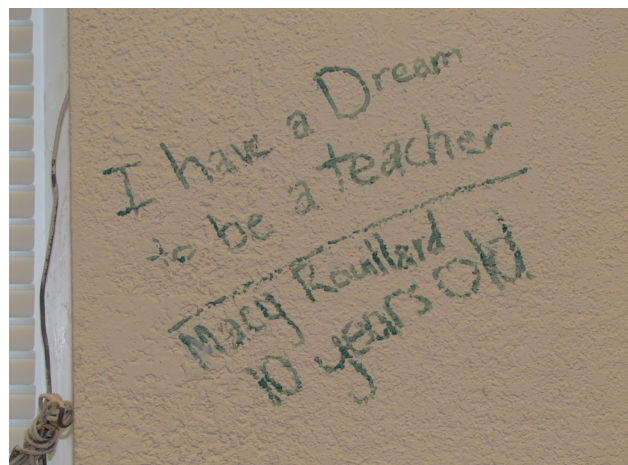 I have a Dream
to be a teacher
Macy Rouillard
10 years old